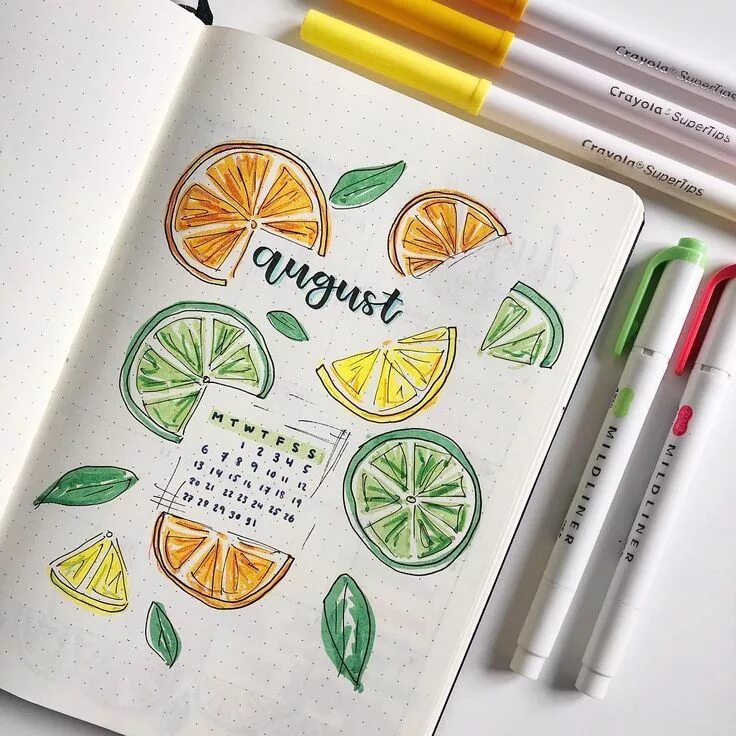 Crayola® SuperTips
Crayola® SuperTips
Crayola® SuperTips
august
M T W T F S S
1 2 3 4 5
6 7 8 9 10 11 12
13 14 15 16 17 18 19
20 21 22 23 24 25 26
27 28 29 30 31
MILDLINER
MILDLINER